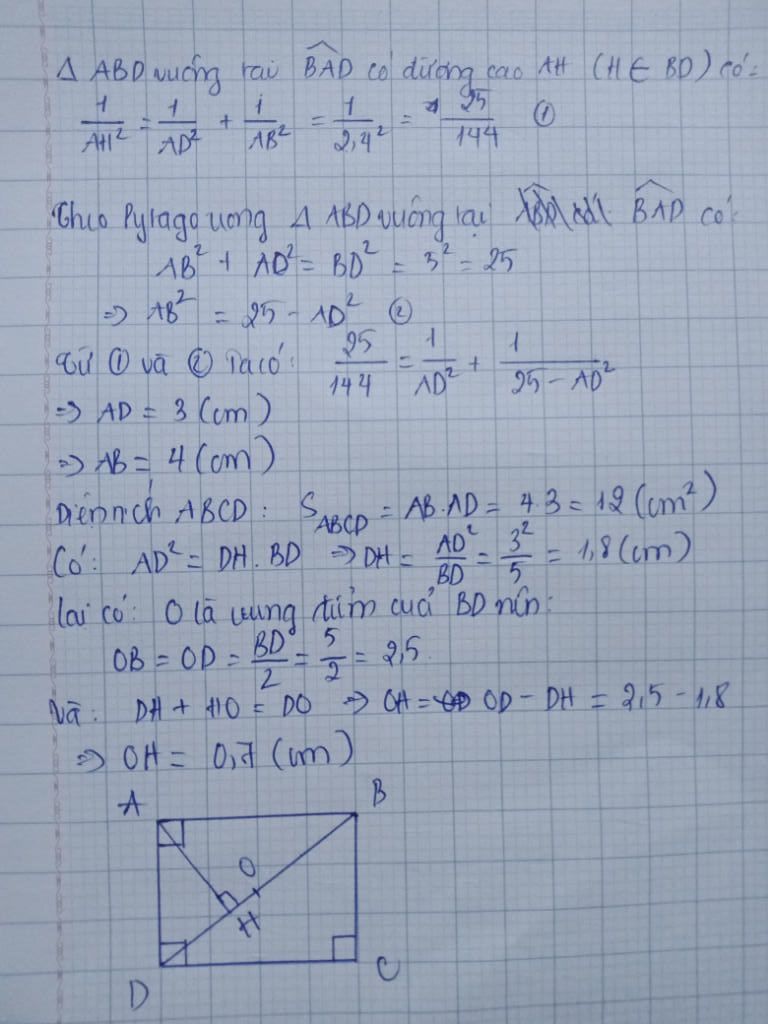 Δ ABD vuông tại BAD có đường cao AH (H ∈ BD) có:
1/AH² = 1/AD² + 1/AB² = 1/2,4² = 25/144 ①
Theo Pytago trong Δ ABD vuông tại BAD có:
AB² + AD² = BD² = 3² = 25
⇒ AB² = 25 - AD² ②
Từ ① và ② Ta có: 25/144 = 1/AD² + 1/(25 - AD²)
⇒ AD = 3 (cm)
⇒ AB = 4 (cm)
Diện tích ABCD: S_ABCD = AB.AD = 4.3 = 12 (cm²)
Có: AD² = DH.BD ⇒ DH = AD²/BD = 3²/5 = 1,8 (cm)
lại có: O là trung điểm của BD nên:
OB = OD = BD/2 = 5/2 = 2,5.
Và: DH + HO = DO ⇒ OH = OD - DH = 2,5 - 1,8
⇒ OH = 0,7 (cm)
A B
O
H
D C